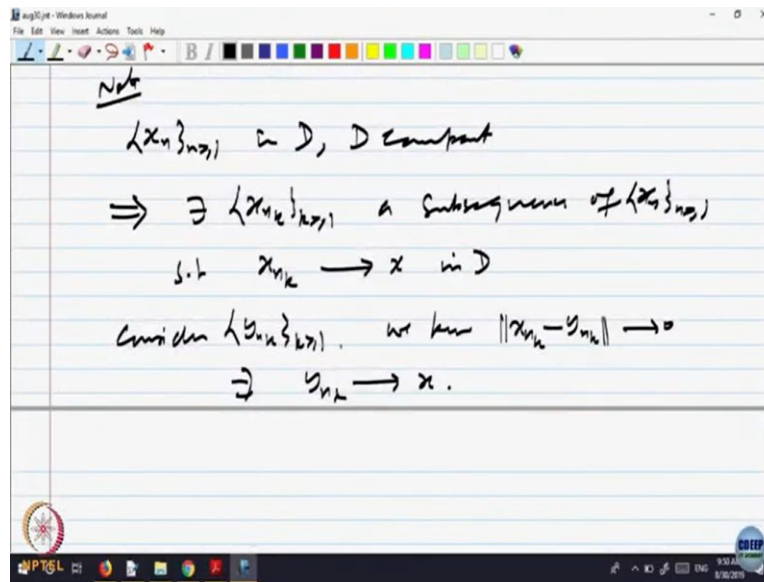 aug30.jnt - Windows Journal
File Edit View Insert Actions Tools Help
B I
Note
{x_n}_{n≥1} in D, D compact
⇒ ∃ {x_{n_k}}_{k≥1} a subsequence of {x_n}_{n≥1}
s.t x_{n_k} → x in D
Consider {y_{n_k}}_{k≥1}. we know ||x_{n_k} - y_{n_k}|| → 0
⇒ y_{n_k} → x.
NPTEL
CDEEP
ENG
9:50 AM
8/30/2019